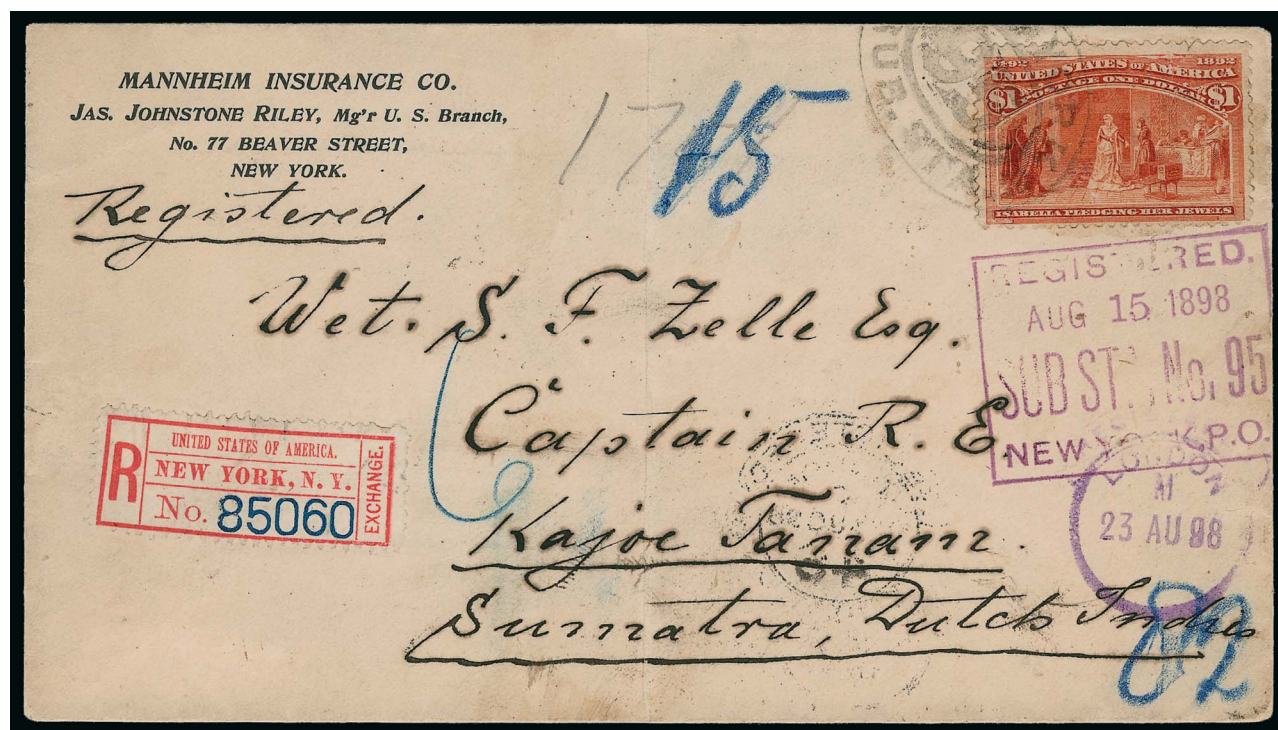 MANNHEIM INSURANCE CO.
JAS. JOHNSTONE RILEY, Mg'r U. S. Branch,
No. 77 BEAVER STREET,
NEW YORK.
Registered.
15
1492 1892
UNITED STATES OF AMERICA
POSTAGE ONE DOLLAR
$1 $1
ISABELLA PLEDGING HER JEWELS
REGISTERED.
AUG 15 1898
SUB ST. No. 95
NEW YORK P.O.
Wet. S. F. Zelle Esq.
Captain R. E.
Kajoe Tanam.
Sumatra, Dutch Indies
R
UNITED STATES OF AMERICA.
NEW YORK, N. Y.
No. 85060
EXCHANGE.
LONDON
23 AU 98